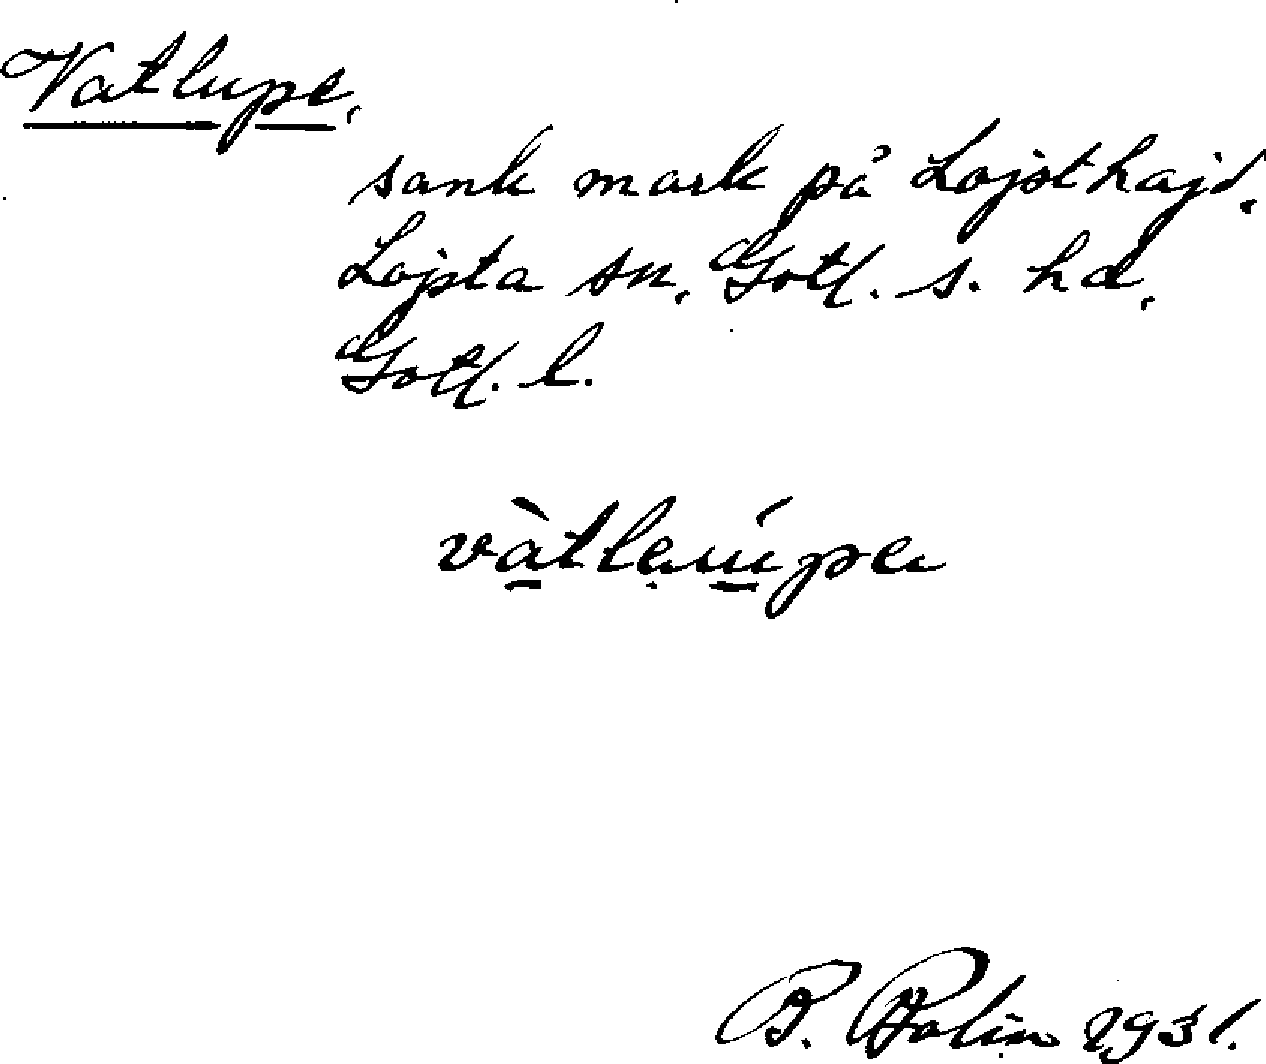 Vatlupe,
sank mark på Lojsthajd,
Lojsta sn, Gotl. s. hd,
Gotl. l.
B. Bolin 1931.